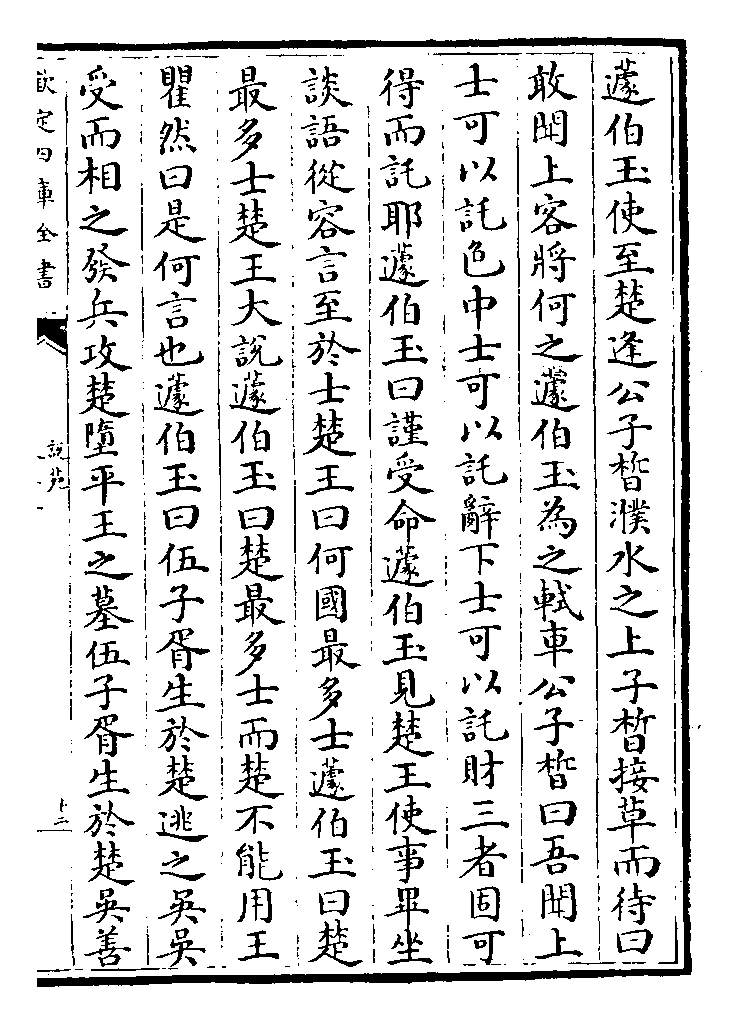 蘧伯玉使至楚逢公子晳濮水之上子晳接草而待曰
敢聞上客將何之蘧伯玉為之軾車公子晳曰吾聞上
士可以託色中士可以託辭下士可以託財三者固可
得而託耶蘧伯玉曰謹受命蘧伯玉見楚王使事畢坐
談語從容言至於士楚王曰何國最多士蘧伯玉曰楚
最多士楚王大說蘧伯玉曰楚最多士而楚不能用王
瞿然曰是何言也蘧伯玉曰伍子胥生於楚逃之吳吳
受而相之發兵攻楚墮平王之墓伍子胥生於楚吳善
欽定四庫全書
說苑
十二